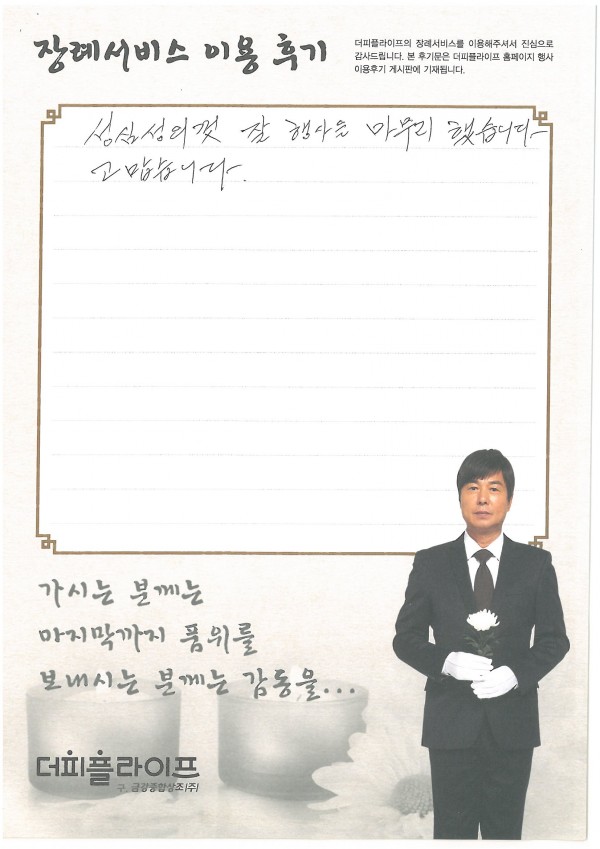 장례서비스 이용 후기
더피플라이프의 장례서비스를 이용해주셔서 진심으로
감사드립니다. 본 후기문은 더피플라이프 홈페이지 행사
이용후기 게시판에 기재됩니다.
성심성의껏 잘 행사을 마무리 했습니다.
고맙습니다.
가시는 분께는
마지막까지 품위를
보내시는 분께는 감동을...
더피플라이프
구. 금강종합상조(주)